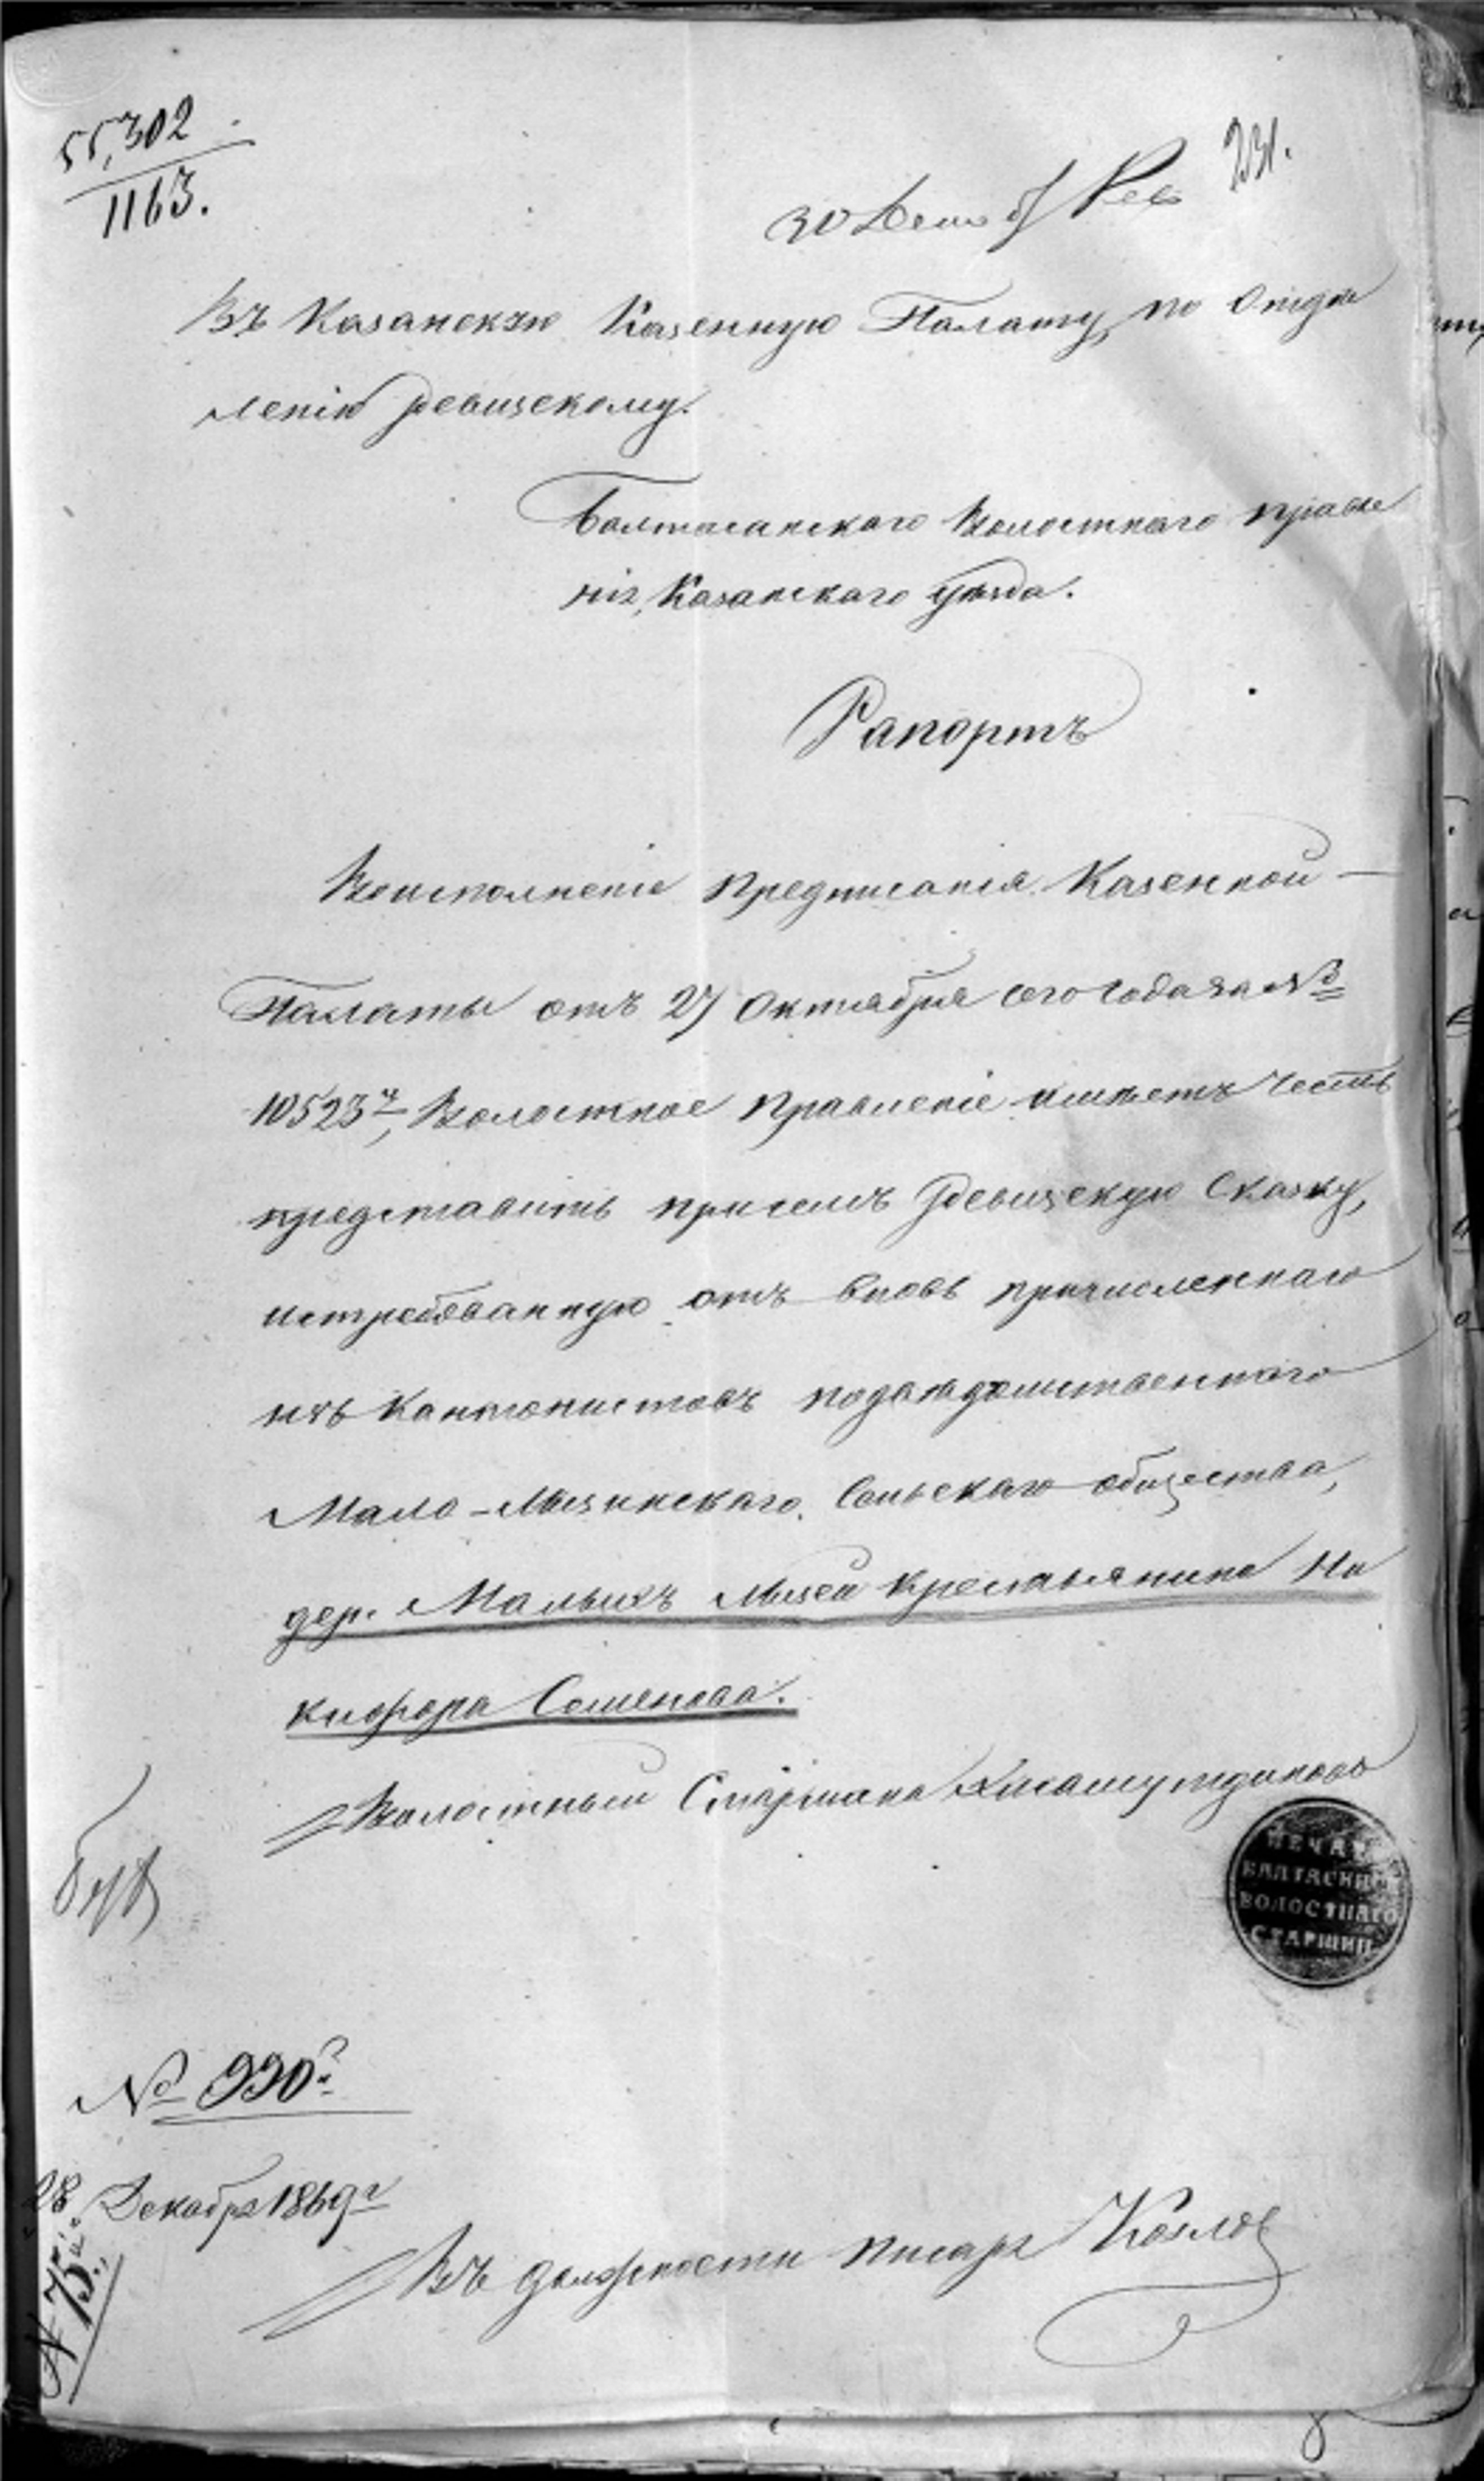 55,302
1163.
231.
30 Дек
Въ Казанскую Казенную Палату, по Отдѣ
ленію Ревизскому.
Балтасинскаго Волостнаго правле
нія, Казанскаго уѣзда.
Рапортъ
Во исполненіе предписанія Казенной
Палаты отъ 27 Октября сего года за №
10523ᵐ, Волостное Правленіе имѣетъ честь
представить при семъ Ревизскую Сказку,
истребованную отъ вновь причисленнаго
изъ Кантонистовъ подвѣдомственнаго
Мало-Лызинскаго Сельскаго общества,
дер. Малыхъ Лызей крестьянина Ни
кифора Семенова.
Волостный Старшина
ПЕЧАТЬ
БАЛТАСИНСК
ВОЛОСТНАГО
СТАРШИН
№ 990
28 Декабря 1860 г
№ 75
Въ должности писаря Козлов